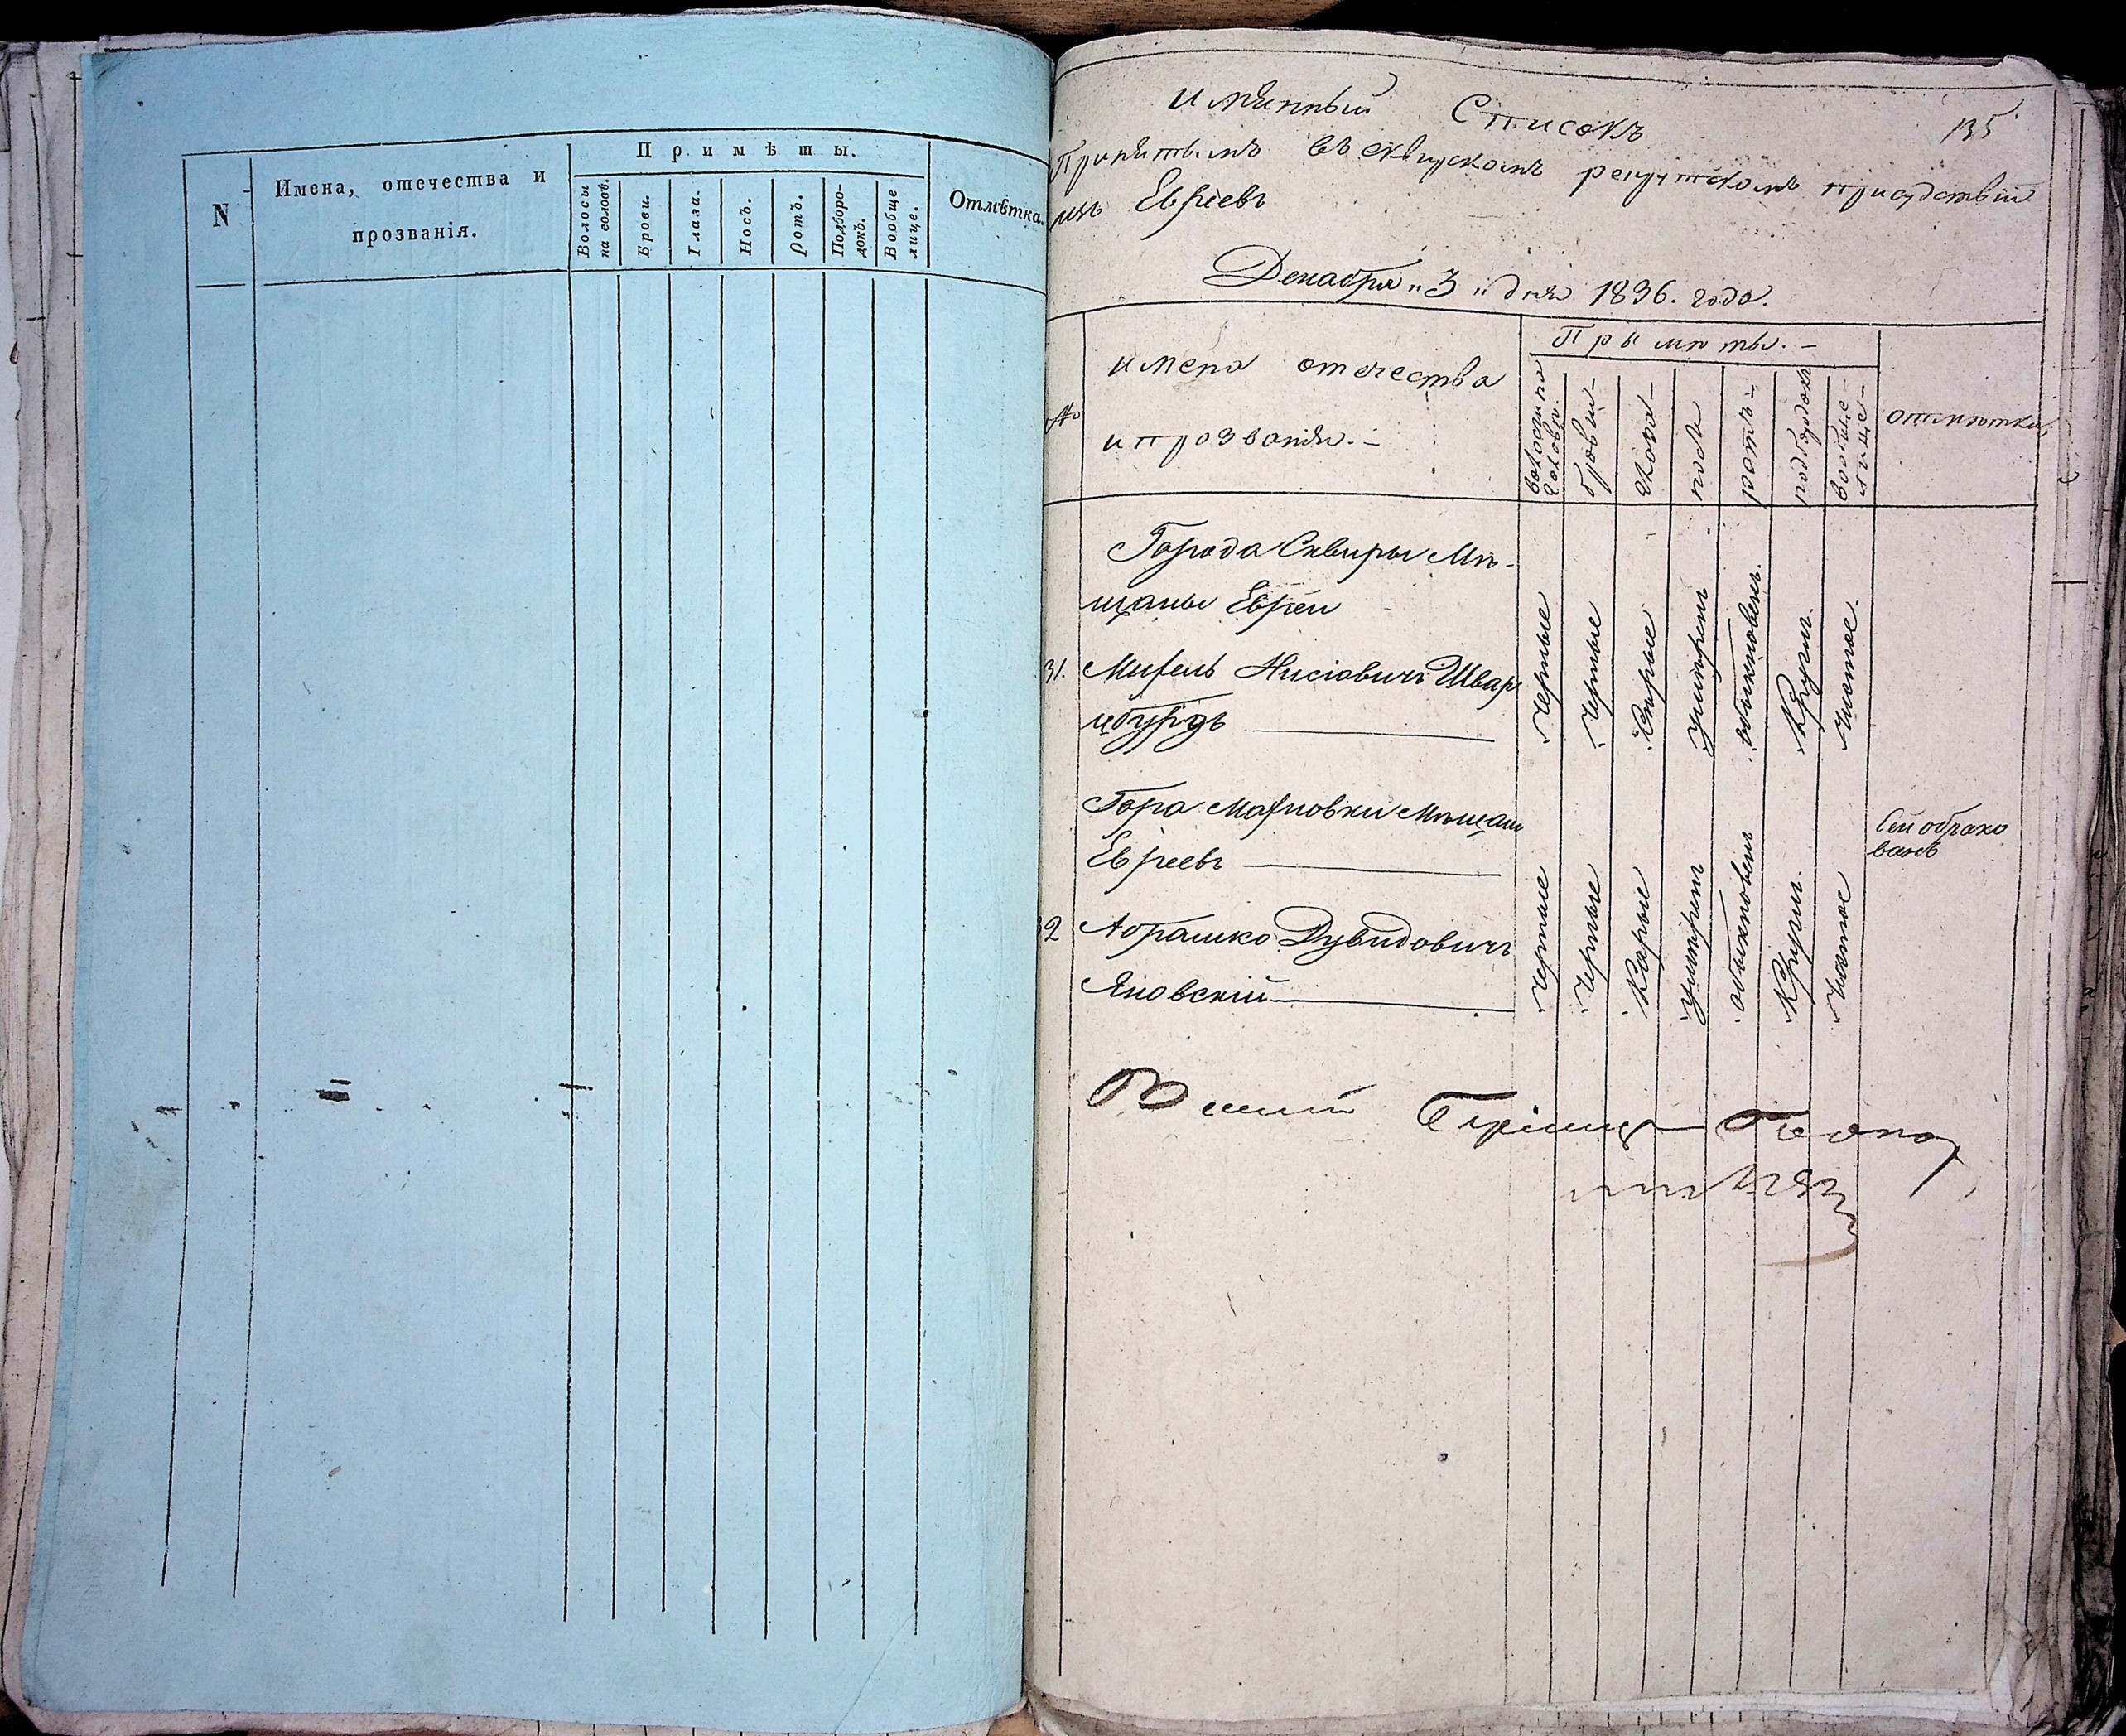 N
Имена, отечества и
прозванія.
Примѣты.
Волосы
на головѣ.
Брови.
Глаза.
Носъ.
Ротъ.
Подборо-
докъ.
Вообще
лице.
Отмѣтка.
135
Имянный Списокъ
Принятымъ въ сквирскомъ рекрутскомъ присудствіи
изъ Евреевъ
Декабря „3„ дня 1836. года.
№
имена отечества
и прозванія. –
Примѣты. –
волосы на
головѣ.
брови –
глаза –
носъ
ротъ –
подбородокъ
вообще
лице –
отмѣтка
Города Сквиры Мѣ-
щаны Евреи
31. Нисіовичъ Швар
цбурдъ
Черные
Черные
Серые
умѣрен
обыкновен.
Кругл.
Чистое.
Евреевъ
Сей обрако
ванъ
32 Абрашко Дувидовичъ
Яновскій
Черные
Черные
Карые
умѣрен
обыкновен
Кругл.
Чистое